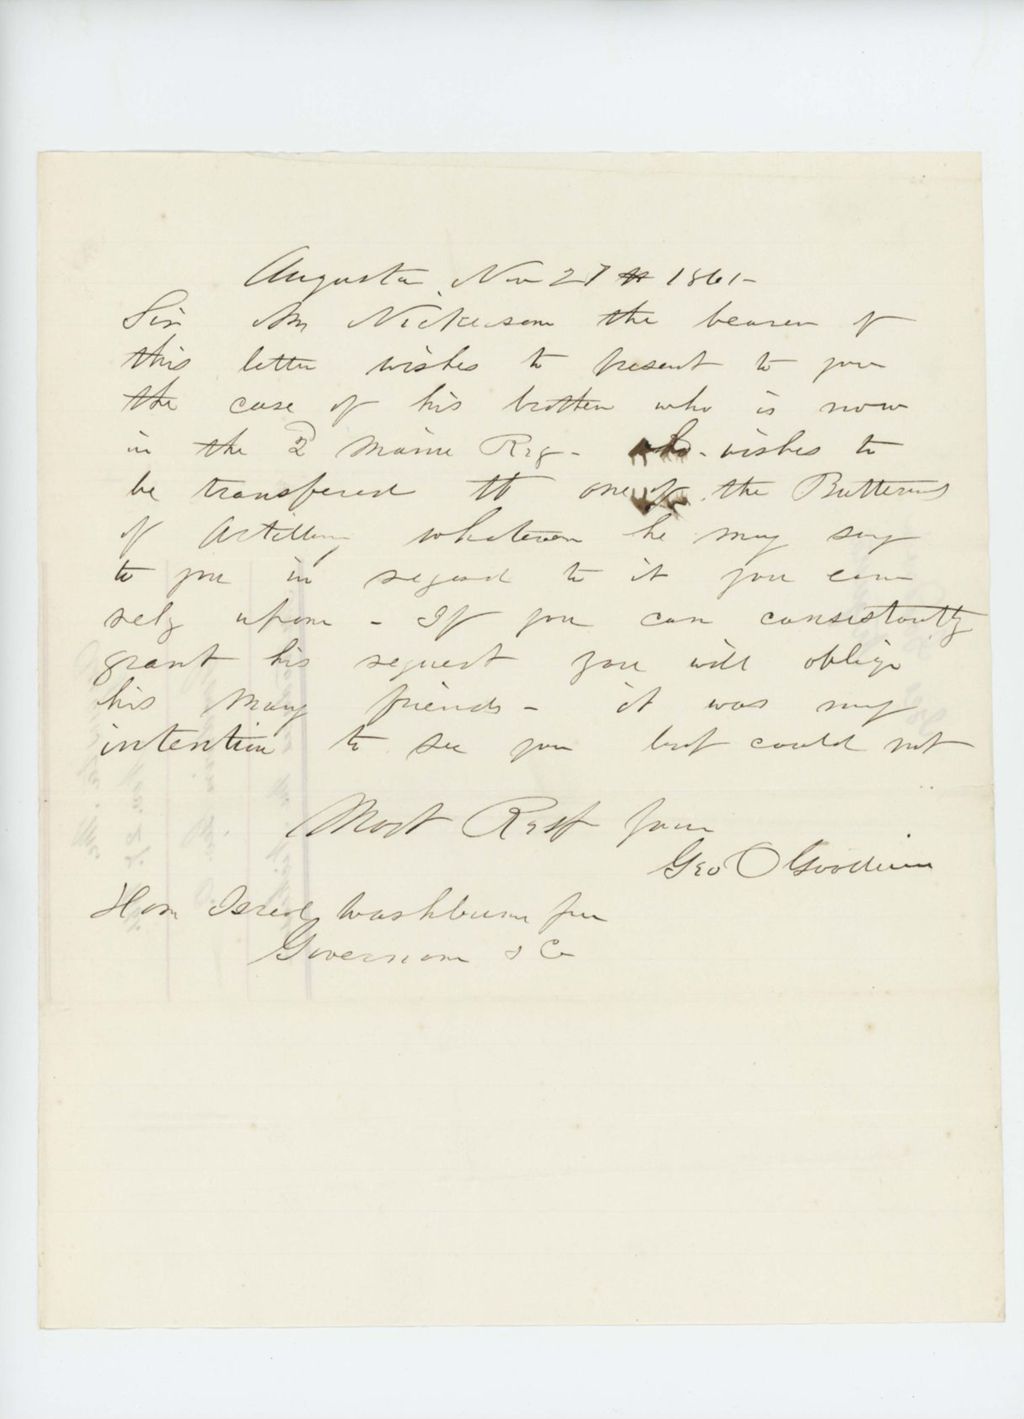 Augusta Nov 27th 1861-
Sir Mr Nickerson the bearer of
this letter wishes to present to you
the case of his brother who is now
in the 2d Maine Reg - who wishes to
be transfered to one of the Batterys
of Artillery whatever he may say
to you in regard to it you can
rely upon - If you can consistantly
grant his request you will oblige
his many friends - it was my
intention to see you but could not
Most Resp your
Geo O Goodwin
Hon Isreal Washburn jun
Governor & C